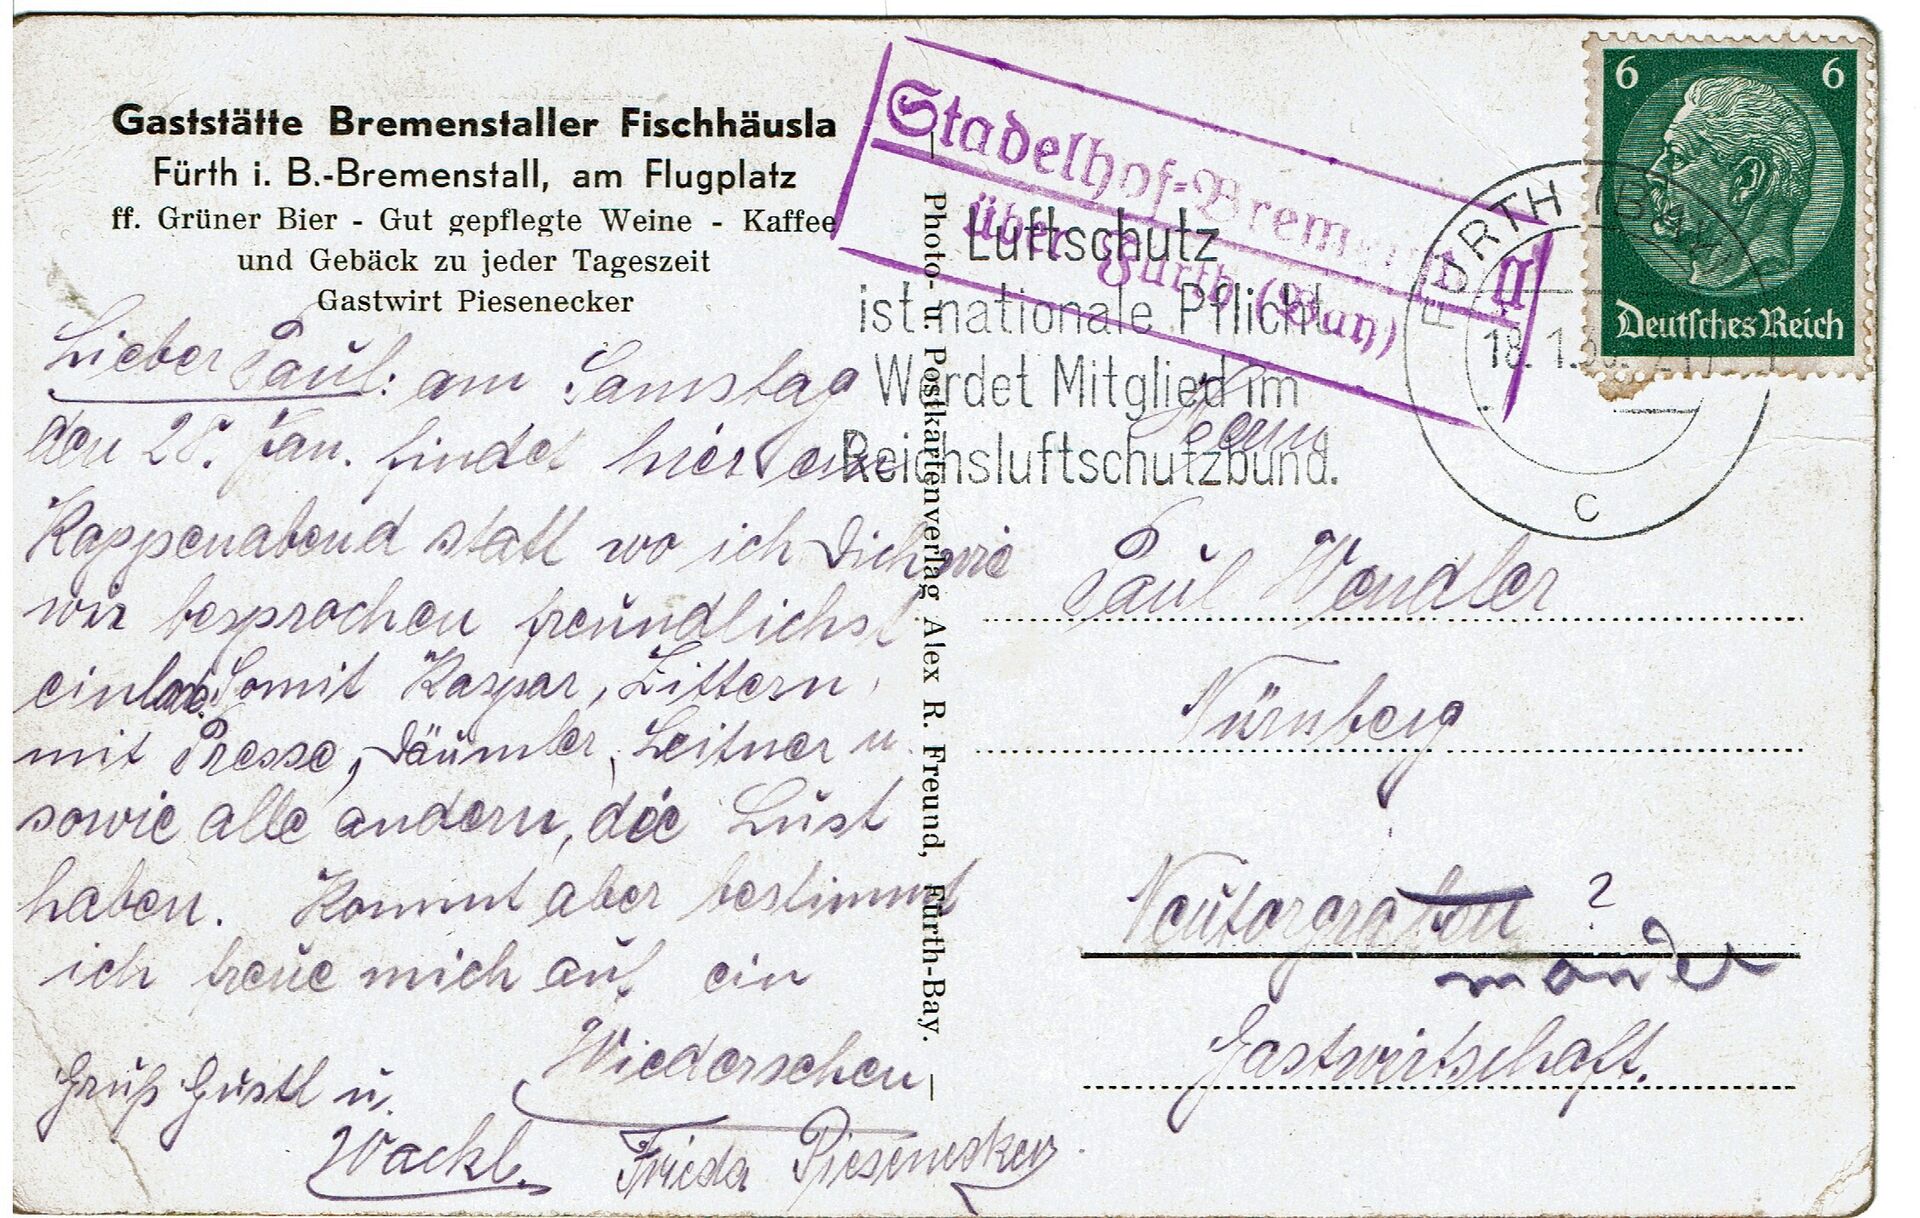 Gaststätte Bremenstaller Fischhäusla
Fürth i. B.-Bremenstall, am Flugplatz
ff. Grüner Bier - Gut gepflegte Weine - Kaffee
und Gebäck zu jeder Tageszeit
Gastwirt Piesenecker
Lieber Paul: am Samstag
den 28. Jan. findet hier ein
Kappenabend statt wo ich Dich wie
wir besprochen freundlichst
einlade. Somit Kaspar, Zittern,
mit Presse, Däumler, Leitner u.
sowie alle andern, die Lust
haben. Kommt aber bestimmt
ich freue mich auf ein
Wiedersehen
Gruß Gustl u.
Wackl.
Frieda Piesenecker
Photo- u. Postkartenverlag Alex R. Freund, Fürth-Bay.
Stadelhof-Bremenstall
über Fürth (Bay)
Luftschutz
ist nationale Pflicht
Werdet Mitglied im
Reichsluftschutzbund.
FÜRTH (BAY)
18.1.
c
6 6
Deutsches Reich
Herrn
Paul Wendler
Nürnberg
Neutorgraben ?
Gastwirtschaft.